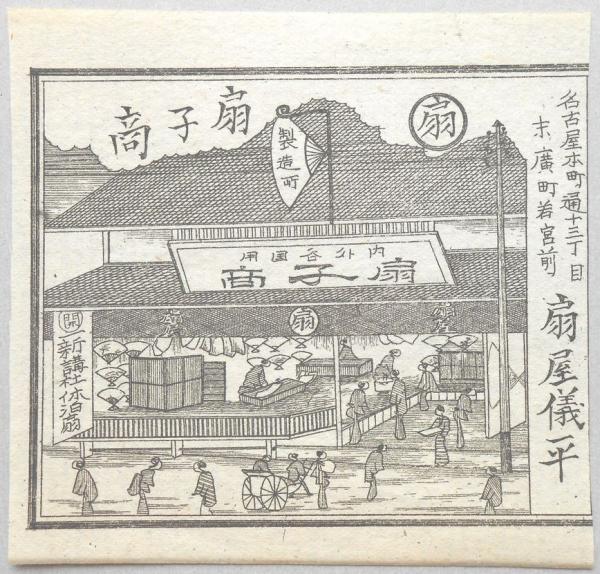 名古屋本町通十三丁目
末廣町若宮前
扇屋儀平
扇
扇子商
製造所
内外各国用
扇子商
扇屋
扇
扇屋
開
新講社休泊